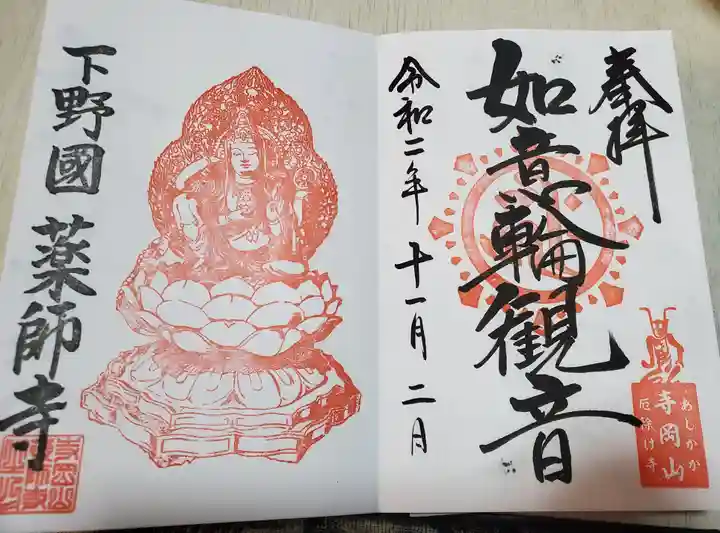 奉拝
如意輪観音
令和二年十一月二日
あしかが
寺岡山
厄除け寺
下野國
薬師寺